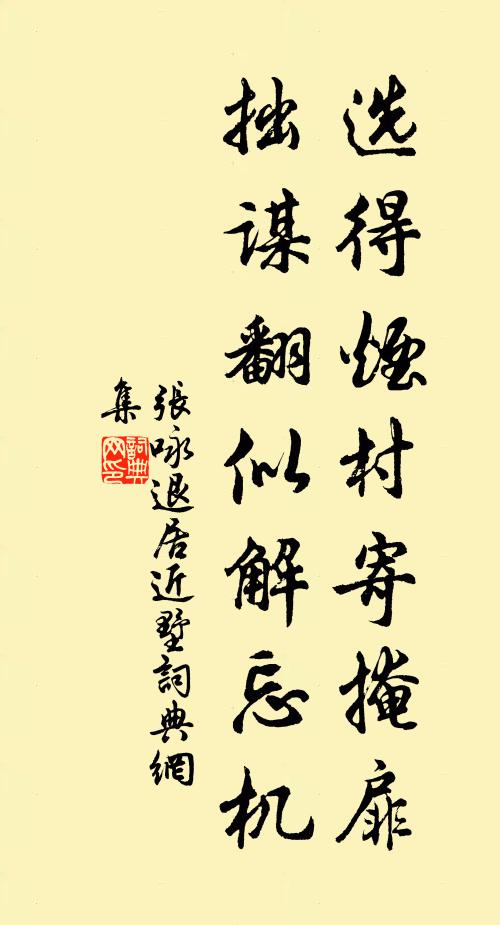 选得煙村寄掩扉
拙谋翻似解忘机
張咏退居近墅詞典網
集
詞典
网印